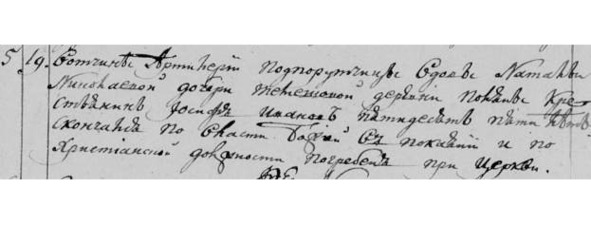 5 19. Вотчины Артилерiи подпорутчицы вдовы Натальи
Николаевой дочери деревни кре-
стьянинъ Iосифъ Ивановъ пятидесятъ пяти лѣтъ
скончался по власти Божiей съ покаянiи и по
христiанской должности погребенъ при церкви.